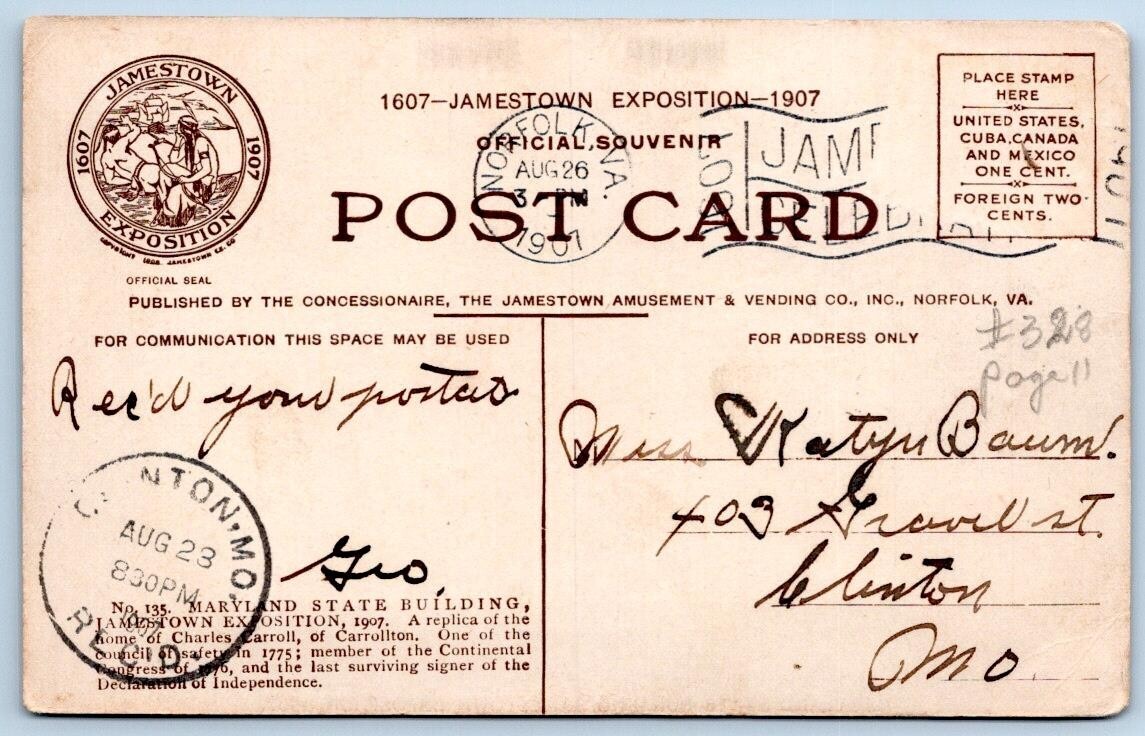 JAMESTOWN
1607 1907
EXPOSITION
OFFICIAL SEAL
1607—JAMESTOWN EXPOSITION—1907
OFFICIAL SOUVENIR
POST CARD
NORFOLK VA.
AUG 26
3 PM
1907
PLACE STAMP
HERE
UNITED STATES,
CUBA, CANADA
AND MEXICO
ONE CENT.
FOREIGN TWO
CENTS.
PUBLISHED BY THE CONCESSIONAIRE, THE JAMESTOWN AMUSEMENT & VENDING CO., INC., NORFOLK, VA.
FOR COMMUNICATION THIS SPACE MAY BE USED
FOR ADDRESS ONLY
#328
page 11
Rec'd your postals
Geo.
Miss Katyn Baum.
403 Gravel st.
Clinton
Mo.
CLINTON, MO.
AUG 28
830PM
1907
REC'D.
No. 135. MARYLAND STATE BUILDING,
JAMESTOWN EXPOSITION, 1907. A replica of the
home of Charles Carroll, of Carrollton. One of the
council of safety in 1775; member of the Continental
Congress of 1776, and the last surviving signer of the
Declaration of Independence.